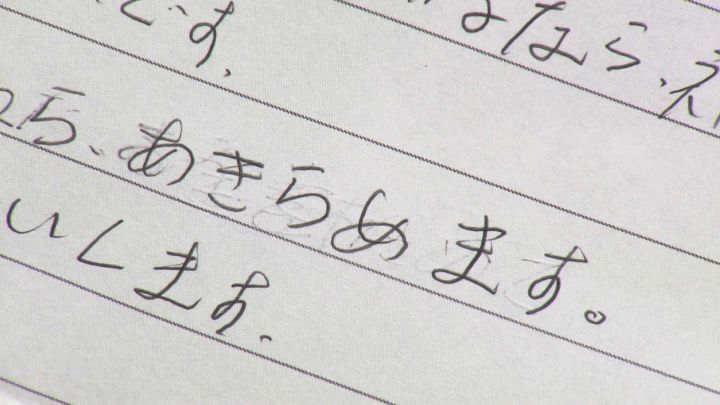 くです。
なら、
ら、あきらめます。
いくます。